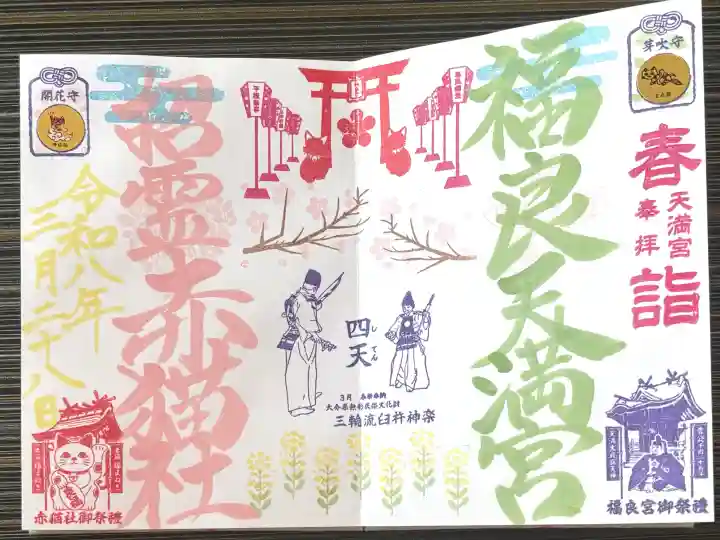 芽吹守
春詣
天満宮
奉拝
福良天満宮
福良宮御祭禮
四天
してん
3月 春祭奉納
大分県無形民俗文化財
三輪流臼杵神楽
開花守
招霊赤猫社
令和八年
三月二十八日
赤猫社御祭禮